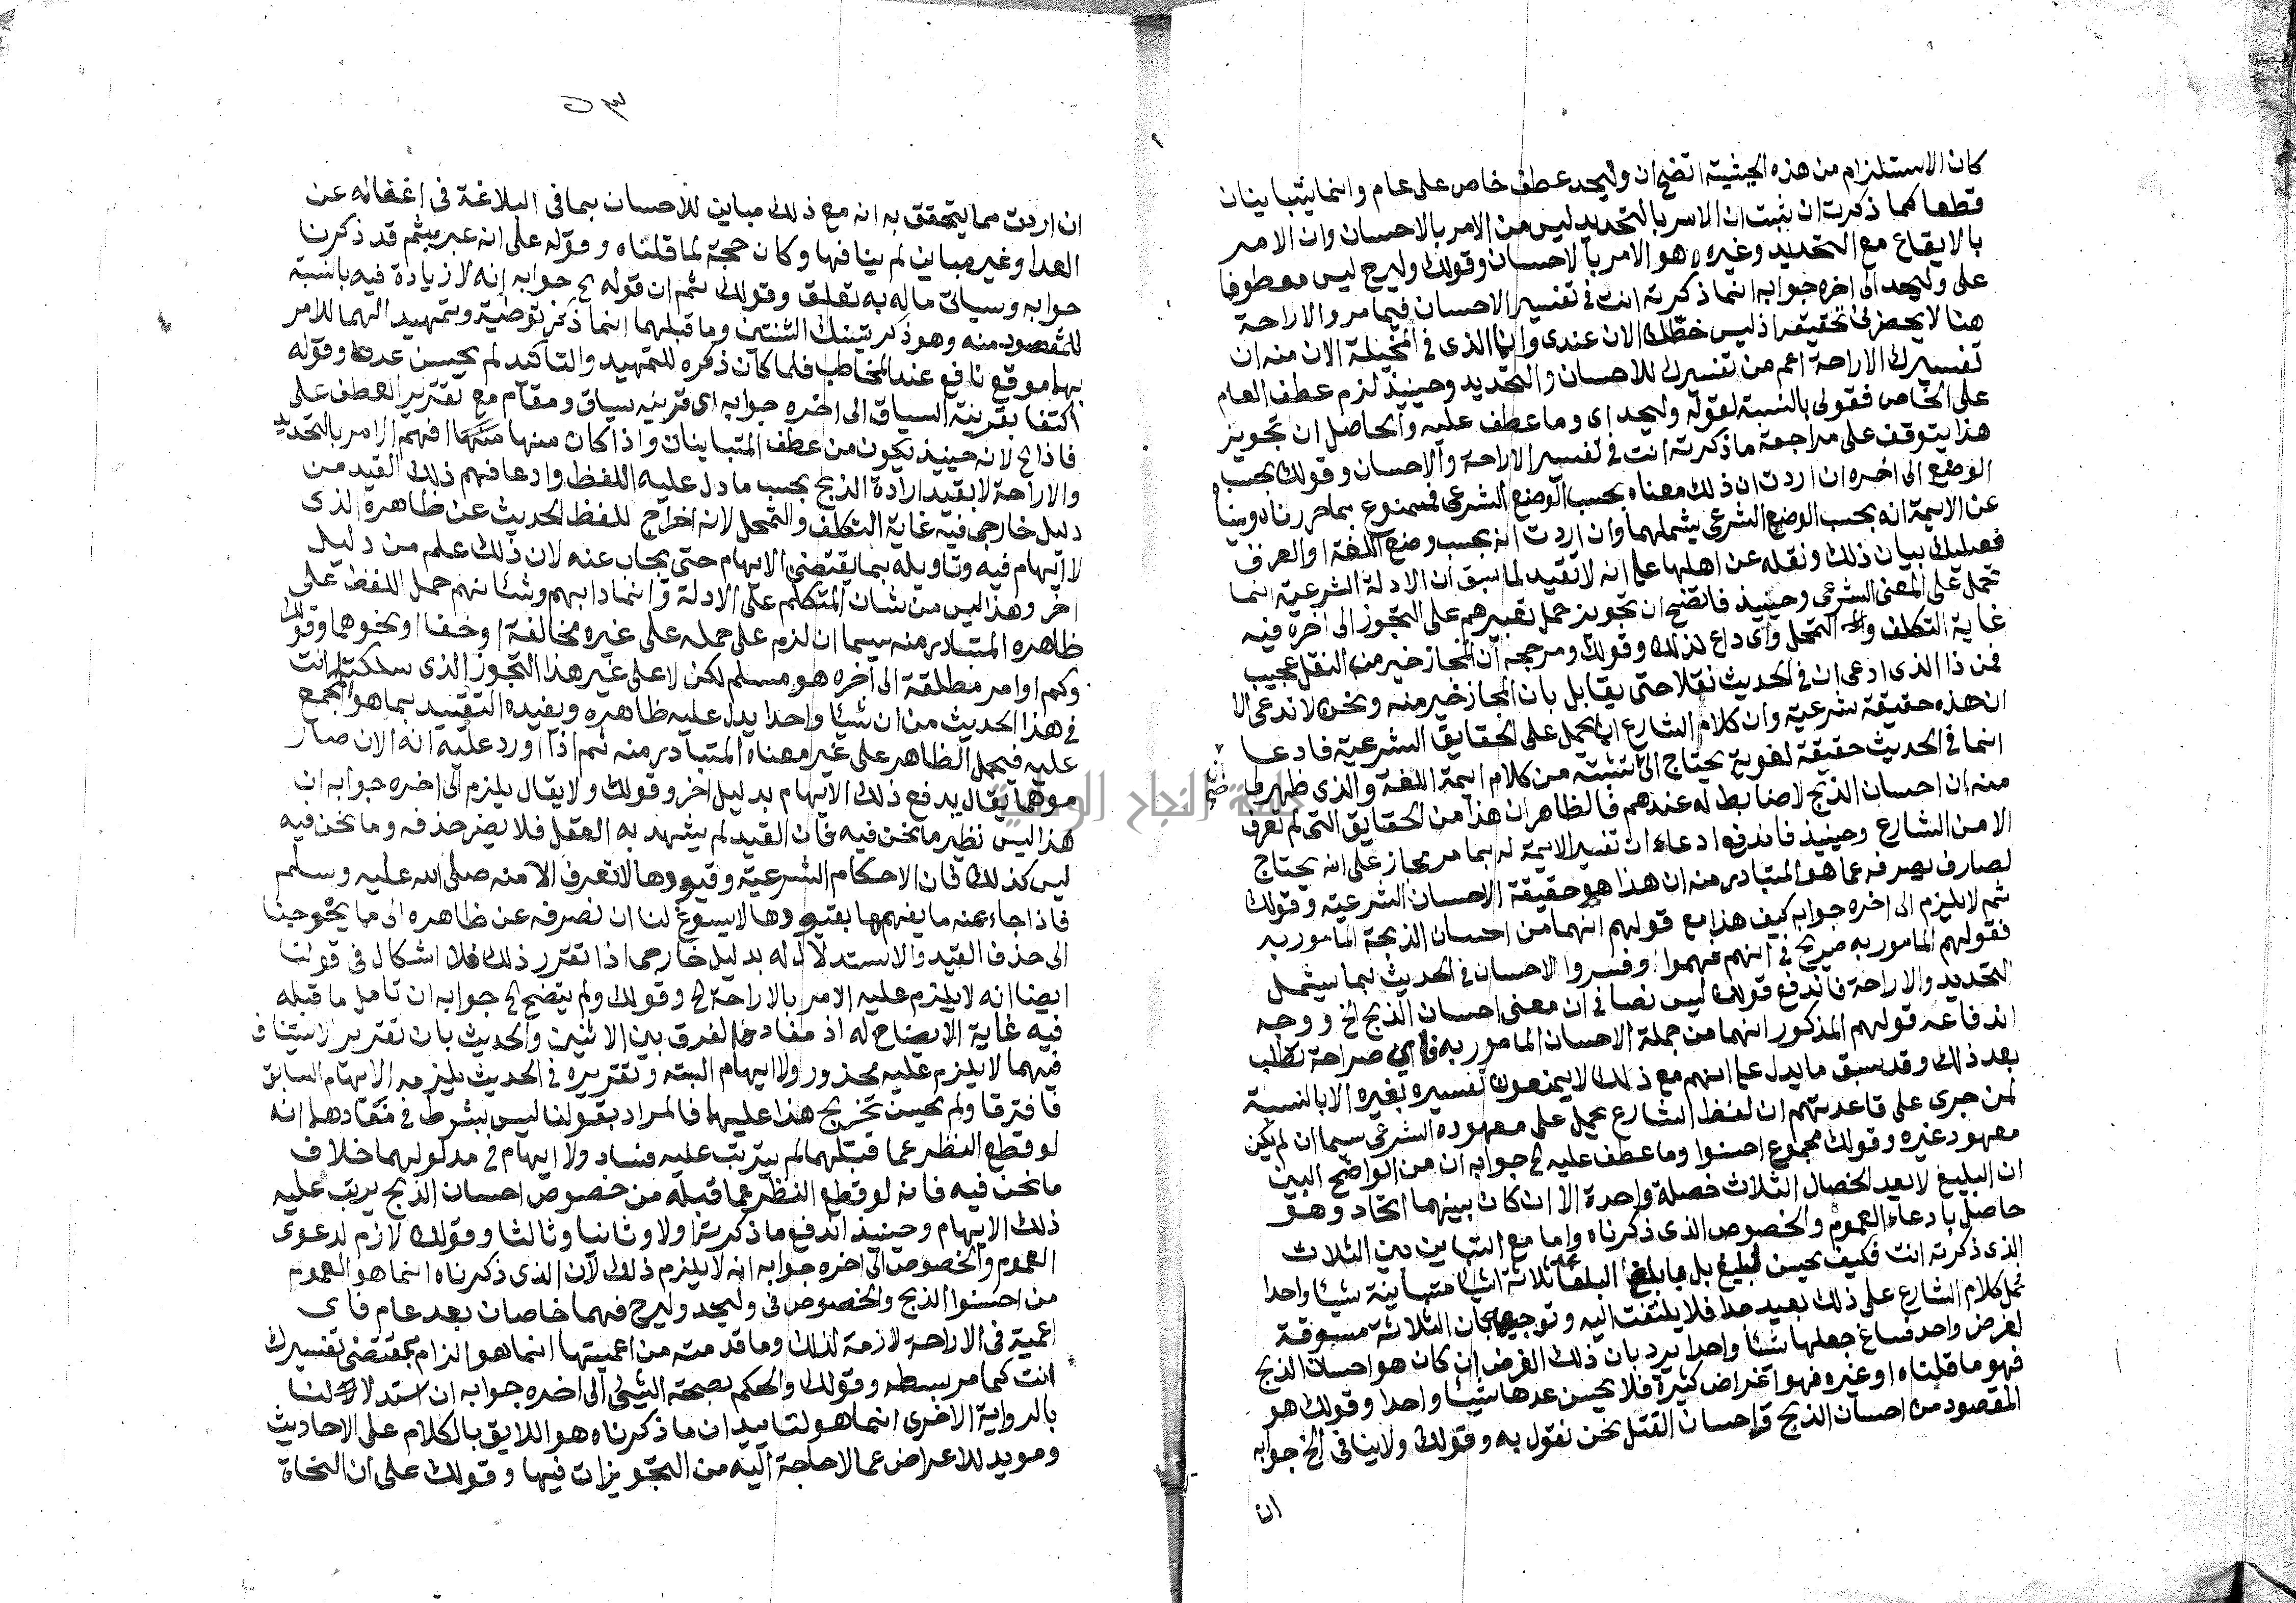 كان الاستلزام من هذه الحيثية اتضح ان وليحد عطف خاص على عام وانما يتباينان
قطعا كما ذكرت ان ثبت ان الامر بالتحديد ليس من الامر بالاحسان وان الامر
بالايقاع مع التحديد وغيره هو الامر بالاحسان وقولك وليرح ليس معطوفا
على وليحد الى اخره جوابه انما ذكرته انت في تفسير الاحسان فيما مر والاراحة
هنا لا يحضرني تحقيقه اذ ليس خطك الان عندي وانما الذي في المخيلة الان منه ان
تفسيرك الاراحة اعم من تفسيرك للاحسان والتحديد وحينيذ لزم عطف العام
على الخاص فقولي بالنسبة لقوله وليحد اى وما عطف عليه والحاصل ان تجويز
هذا يتوقف على مراجعة ما ذكرته انت في تفسير الاراحة والاحسان وقولك بحسب
الوضع الى اخره ان اردت ان ذلك معناه بحسب الوضع الشرعى فممنوع بما حررناه وبينا
عن الايمة انه بحسب الوضع الشرعى يشملهما وان اردت انه بحسب وضع اللغة او العرف
فعليك بيان ذلك ونقله عن اهلها على انه لا تقيد لما سبق ان الادلة الشرعية انما
تحمل على المعنى الشرعى وحينيذ فاتضح ان تجويز حمل تعبيرهم على التجوز الى اخره فيه
غاية التكلف والتمحل واى داع لذلك وقولك ومرجحه ان المجاز خير من النقل عجيب
فمن ذا الذى ادعى ان في الحديث نقلا حتى يقابل بان المجاز خير منه ونحن لا ندعى الا
ان هذه حقيقة شرعية وان كلام الشارع انما يحمل على الحقايق الشرعية فادعا
انما في الحديث حقيقة لغوية يحتاج الى تثبته من كلام ايمة اللغة والذى ظهر لى
منه ان احسان الذبح لا ضابط له عندهم فالظاهر ان هذا من الحقايق التى لم تعرف
الا من الشارع وحينيذ فاندفع ادعاء ان تفسير الايمة له بما مر مجاز على انه يحتاج
لصارف يصرفه عما هو المتبادر منه ان هذا هو حقيقة الاحسان الشرعية وقولك
ثم لا يلزم الى اخره جوابه كيف هذا مع قولهم انهما من احسان الذبحة المامور به
فقولهم المامور به صريح في انهم فهموا وفسروا الاحسان في الحديث بما يشمل
التحديد والاراحة فاندفع قولك ليس نصا في ان معنى احسان الذبح الخ ووجه
اندفاعه قولهم المذكور انهما من جملة الاحسان المامور به فاى صراحة تطلب
بعد ذلك وقد سبق ما يدل على انهم مع ذلك لا يمنعون تفسيره بغيره الا بالنسبة
لمن جرى على قاعدتهم ان لفظ الشارع يحمل على معهوده الشرعى سيما ان لم يكن
معهود غيره وقولك مجموع احسنوا وما عطف عليه الخ جوابه ان من الواضح البين
ان البليغ لا يعد الخصال الثلاث خصلة واحدة الا ان كان بينهما اتحاد وهو
حاصل بادعاء العموم والخصوص الذى ذكرناه واما مع التباين بين الثلاث
الذى ذكرته انت فكيف يحسن لبليغ بل ما بلغ البلغا عد ثلاثة اشيا متباينة شيئا واحدا
فحمل كلام الشارع على ذلك بعيد جدا فلا يلتفت اليه وتوجيهه بان الثلاثة مسوقة
لغرض واحد فساغ جعلها شيئا واحدا يرد بان ذلك الغرض ان كان هو احسان الذبح
فهو ما قلناه او غيره فهو اغراض كثيرة فلا يحسن عدها شيئا واحدا وقولك هو
المقصود من احسان الذبح واحسان القتل نحن نقول به وقولك ولا ينافى الخ جوابه
ان
ان اردت مما يتحقق به انه مع ذلك مباين للاحسان بما في البلاغة في اغفاله عن
العد او غير مباين لم ينافها وكان حجة لما قلناه وقوله على انه عبر بثم قد ذكرنا
جوابه وسياتى ما له به تعلق وقولك ثم ان قوله الخ جوابه انه لا زيادة فيه بالنسبة
للمقصود منه وهو ذكر تينك الثنتين وما قبلهما انما ذكر توطية وتمهيد الهما للامر
بهما موقع نافع عند المخاطب فلما كان ذكره للتمهيد والتاكيد لم يحسن عده وقوله
اكتفا بقرينة السياق الى اخره جوابه اى قرينه سياق ومقام مع تقرير العطف على
فاذبح لانه حينيذ يكون من عطف المتباينان واذا كان منها افهم الامر بالتحديد
والاراحة لا بقيد ارادة الذبح بحسب ما دل عليه اللفظ وادعا فهم ذلك القيد من
دليل خارجى فيه غاية التكلف والتمحل لانه اخراج للفظ الحديث عن ظاهره الذى
لا ايهام فيه وتاويله بما يقتضى الايهام حتى يجاب عنه لان ذلك علم من دليل
اخر وهذا ليس من شان المتكلم على الادلة وانما دابهم وشانهم حمل اللفظ على
ظاهره المتبادر منه سيما ان لزم على حمله على غيره مخالفة او خفا او نحوهما وقولك
وكم اوامر مطلقة الى اخره هو مسلم لكن لا على غير هذا التجوز الذى سلكته انت
في هذا الحديث من ان شيئا واحدا يدل عليه ظاهره ويفيده التقييد بما هو المجمع
عليه فيحمل الظاهر على غير معناه المتبادر منه ثم اذا اورد عليه انه الان صار
موهما يقال يدفع ذلك الايهام بدليل اخر وقولك ولا يقال يلزم الى اخره جوابه ان
هذا ليس نظير ما نحن فيه فان القيد لم يشهد به العقل فلا يضر حذفه وما نحن فيه
ليس كذلك فان الاحكام الشرعية وقيودها لا تعرف الا منه صلى الله عليه وسلم
فاذا جاء عنه ما يفهمها بقيودها لا يسوغ لنا ان نصرفه عن ظاهره الى ما يحوجنا
الى حذف القيد والاستدلال له بدليل خارجى اذا تقرر ذلك فلا اشكال في قولنا
ايضا انه لا يلزم عليه الامر بالاراحة الخ وقولك ولم يتضح الخ جوابه ان تامل ما قبله
فيه غاية الايضاح له اذ مفاده الفرق بين الاثنين والحديث بان تقرير الاستيناف
فيهما لا يلزم عليه محذور ولا ايهام البته وتقريره في الحديث يلزمه الايهام السابق
فافترقا ولم يحسن تخريج هذا عليهما فالمراد بقولنا ليس بشرط في مفادهما انه
لو قطع النظر عما قبلهما لم يترتب عليه فساد ولا ايهام في مدلولهما خلاف
ما نحن فيه فانه لو قطع النظر عما قبله من خصوص احسان الذبح يرتب عليه
ذلك الايهام وحينيذ اندفع ما ذكرته اولا وثانيا وثالثا وقولك لازم لدعوى
العموم والخصوص الى اخره جوابه انه لا يلزم ذلك لان الذى ذكرناه انما هو العموم
من احسنوا الذبح والخصوص في وليحد وليرح فهما خاصان بعد عام فاى
اعمية في الاراحة لازمة لذلك وما قدمته من اعميتها انما هو الزام بمقتضى تفسيرك
انت كما مر بسطه وقولك والحكم بصحة الشئ الى اخره جوابه ان استدلالنا
بالرواية الاخرى انما هو لتاييد ان ما ذكرناه هو اللايق بالكلام على الاحاديث
ومويد للاعراض عما لا حاجة اليه من التجويزات فيها وقولك على ان النحاة
جامعة النجاح الوطنية